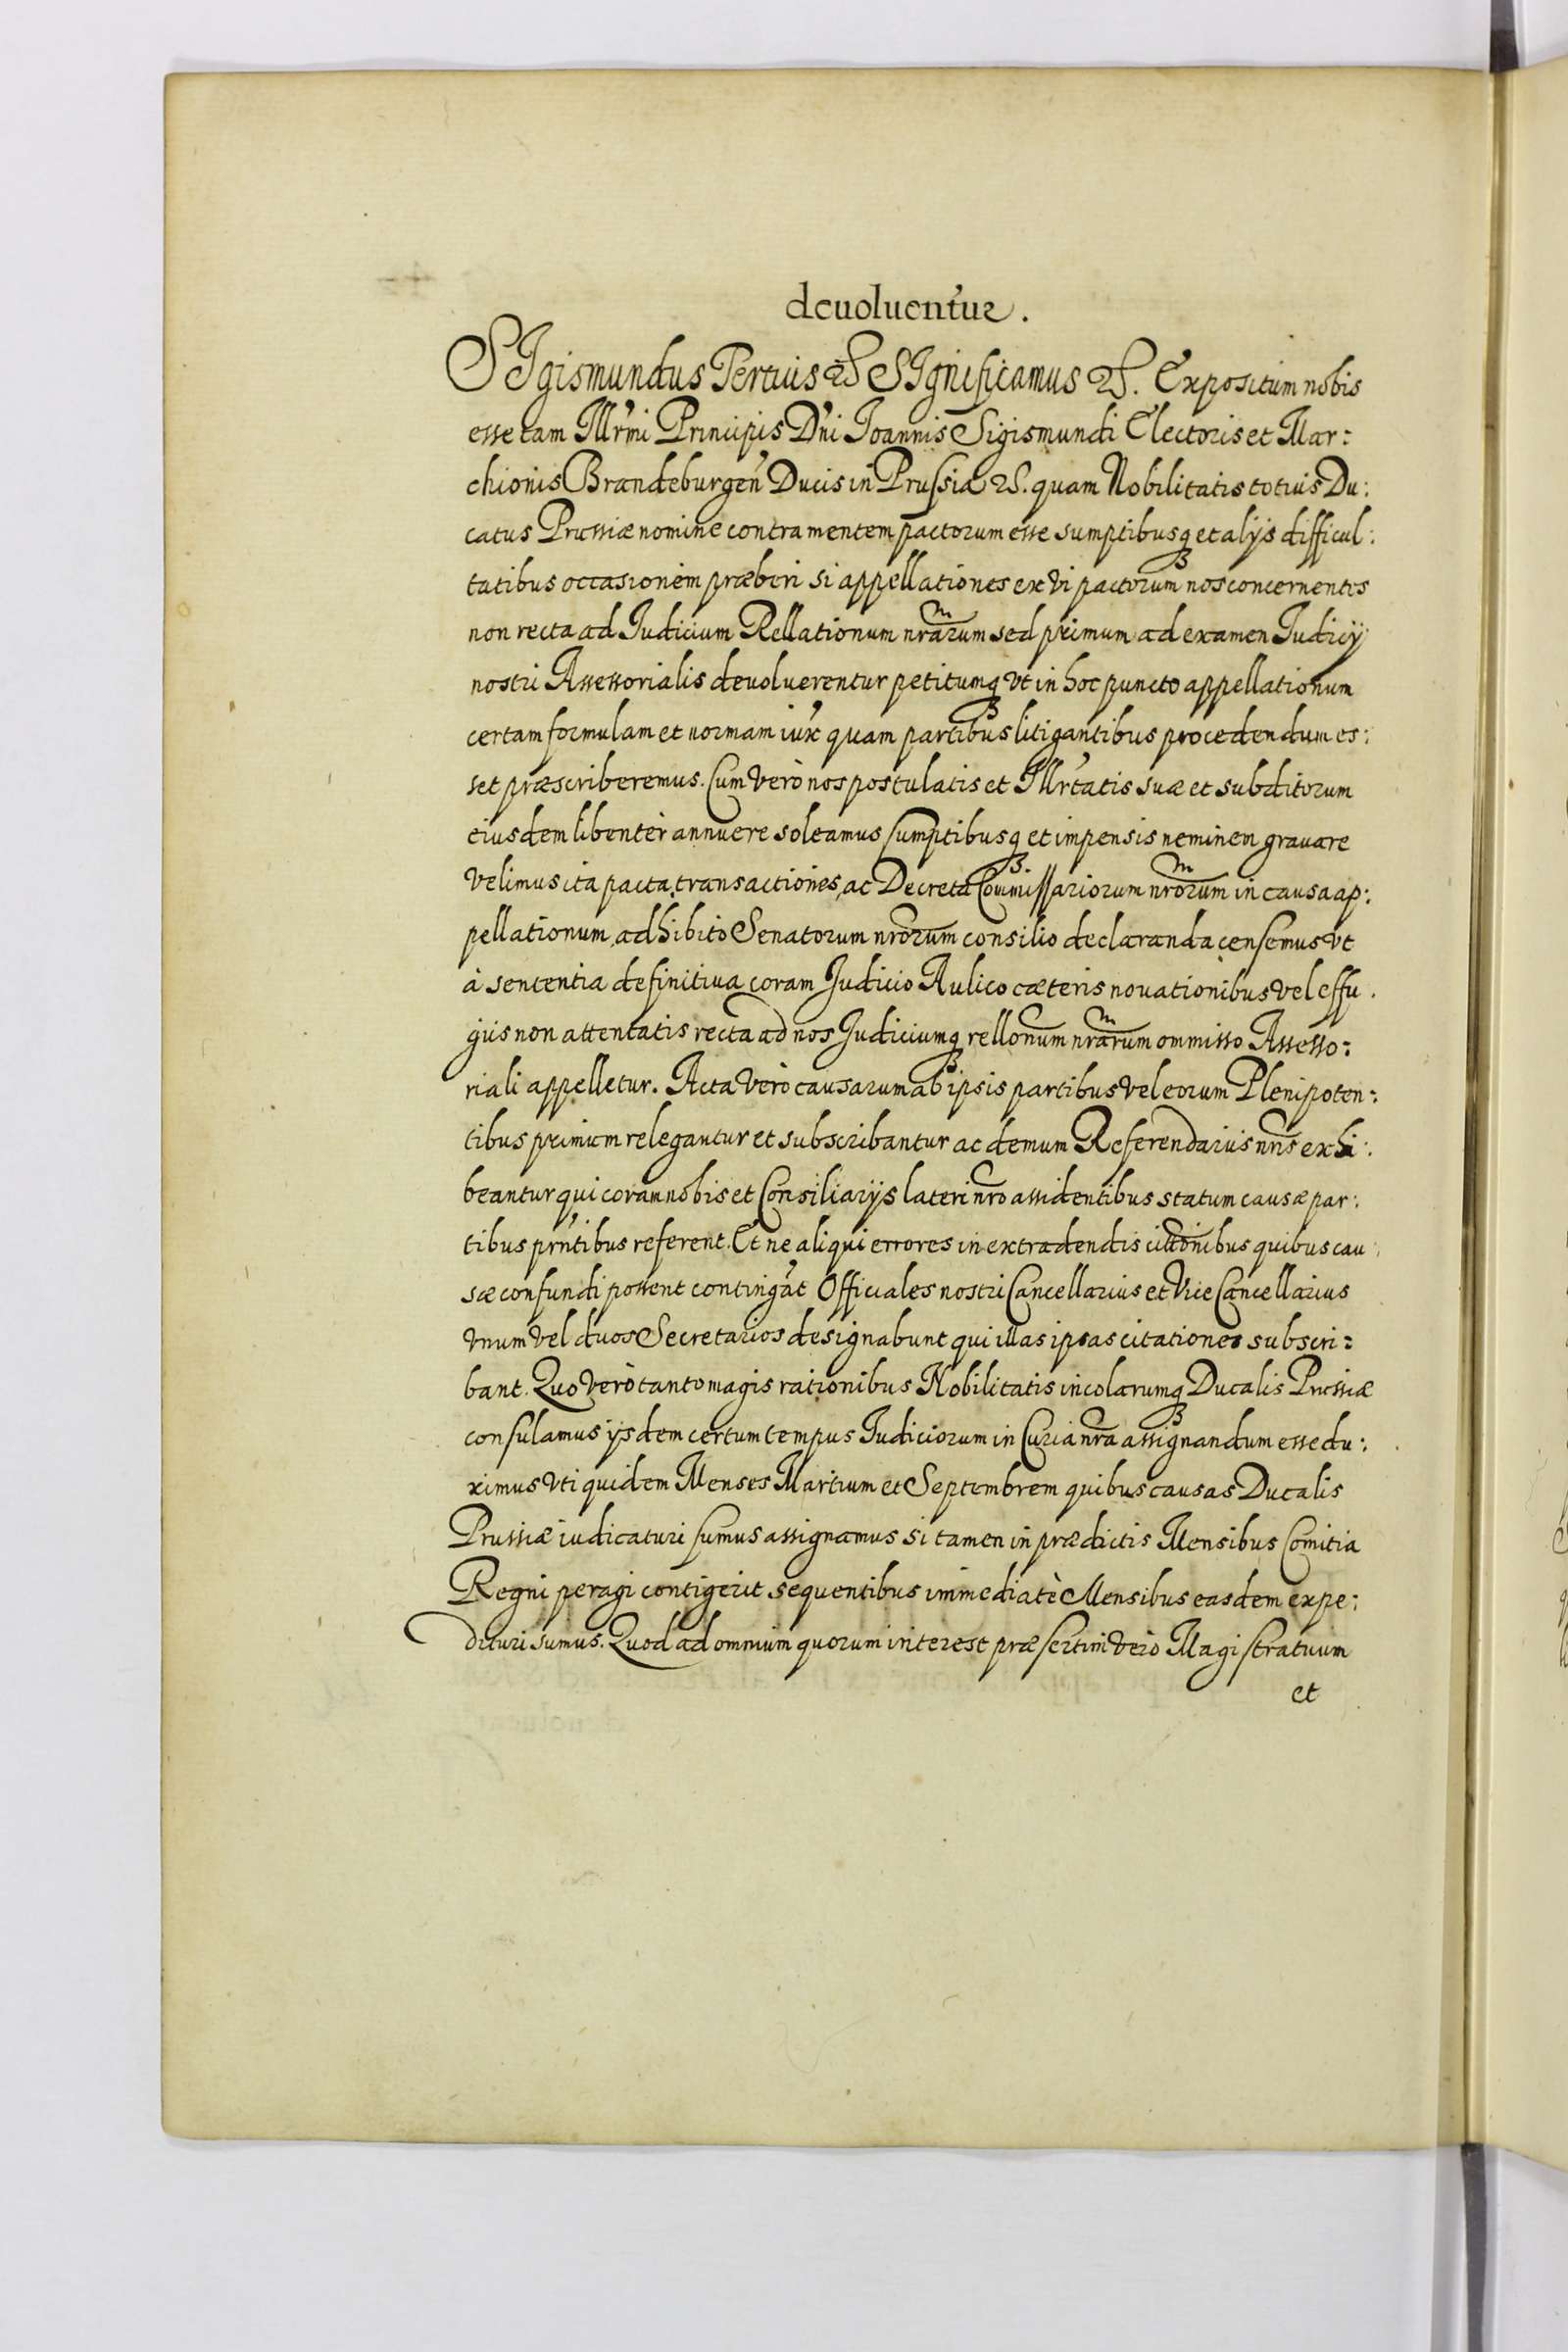 deuoluentur.
SIgismundus Tertius etc SIgnificamus etc. Expositum nobis
esse tam Illr̃mi Principis Dñi Joannis Sigismundi Electoris et Mar:
chionis Brandeburgeñ Ducis in Prussia etc. quam Nobilitatis totius Du:
catus Prussiæ nomine contra mentem pactorum esse sumptibusq; et alijs difficul:
tatibus occasionem præberi si appellationes ex vi pactorum nos concernentes
non recta ad Judicium Rellationum nr̃arum sed primum ad examen Judicij
nostri Assessorialis deuoluerentur petitumq; vt in hoc puncto appellationum
certam formulam et normam iux̃ quam partibus litigantibus procedendum es:
set præscriberemus. Cum verò nos postulatis et Illr̃tatis suæ et subditorum
eiusdem libenter annuere soleamus sumptibusq; et impensis neminem grauare
velimus ita pacta, transactiones, ac Decreta Commissariorum nr̃orum in causa ap:
pellationum, adhibito Senatorum nr̃orum consilio declaranda censemus vt
à sententia definitiua coram Judicio Aulico cæteris nouationibus vel effu.
gijs non attentatis recta ad nos Judiciumq; rellõnum nr̃arum ommisso Assesso:
riali appelletur. Acta verò causarum ab ipsis partibus vel eorum Plenipoten:
tibus primum relegantur et subscribantur ac demum Referendarijs nr̃is exhi:
beantur qui coram nobis et Consiliarijs lateri nr̃o assidentibus statum causæ par:
tibus pr̃ntibus referent. Et ne aliqui errores in extradendis cittõnibus quibus cau:
sæ confundi possent contingãt Officiales nostri Cancellarius et ViceCancellarius
vnum vel duos Secretarios designabunt qui illas ipsas citationes subscri:
bant. Quo verò tanto magis rationibus Nobilitatis incolarumq; Ducalis Prussiæ
consulamus ijsdem certum tempus Judiciorum in Curia nr̃a assignandum esse du:
ximus vti quidem Menses Martium et Septembrem quibus causas Ducalis
Prussiæ iudicaturi sumus assignamus si tamen in prædictis Mensibus Comitia
Regni peragi contigerit sequentibus immediatè Mensibus easdem expe:
dituri sumus. Quod ad omnium quorum interest præsertim verò Magistratuum
et